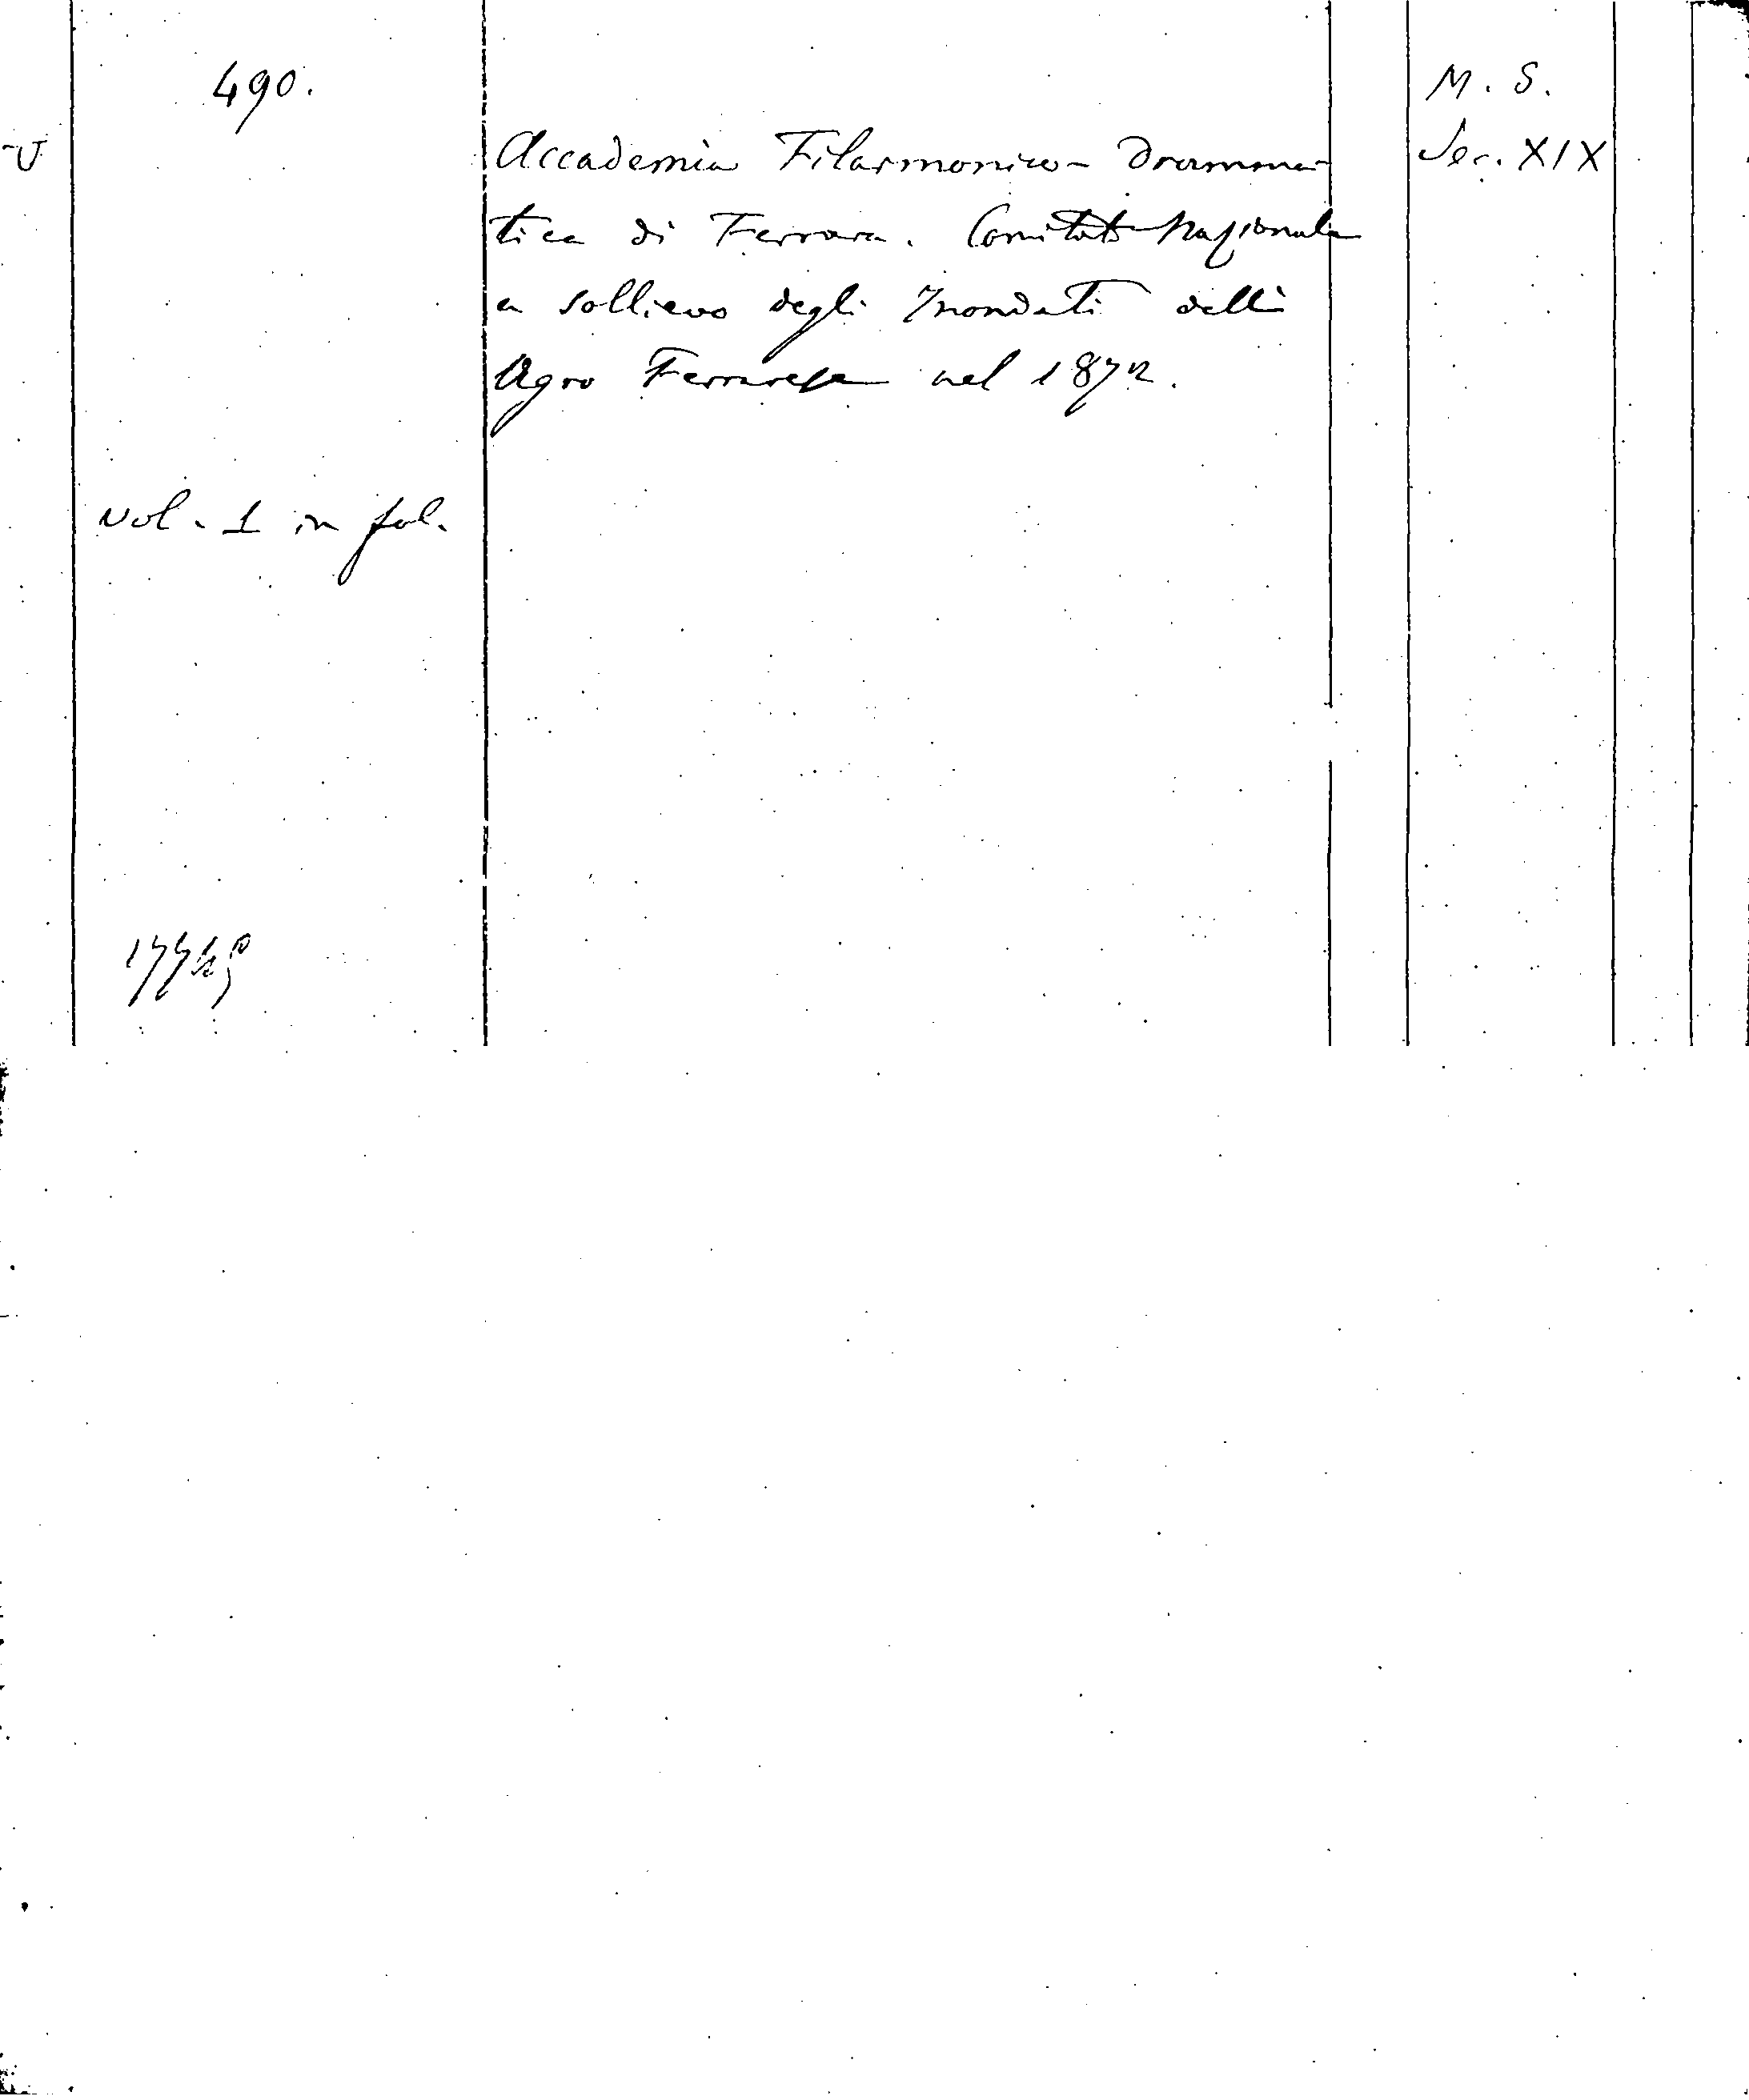 490.
M. S.
Accademia Filarmonico-Dramma-
Sec. XIX
tica di Ferrara. Comitato Nazionale
a sollievo degli Inondati dell'
Agro Ferrarese nel 1872.
Vol. 1 in fol.